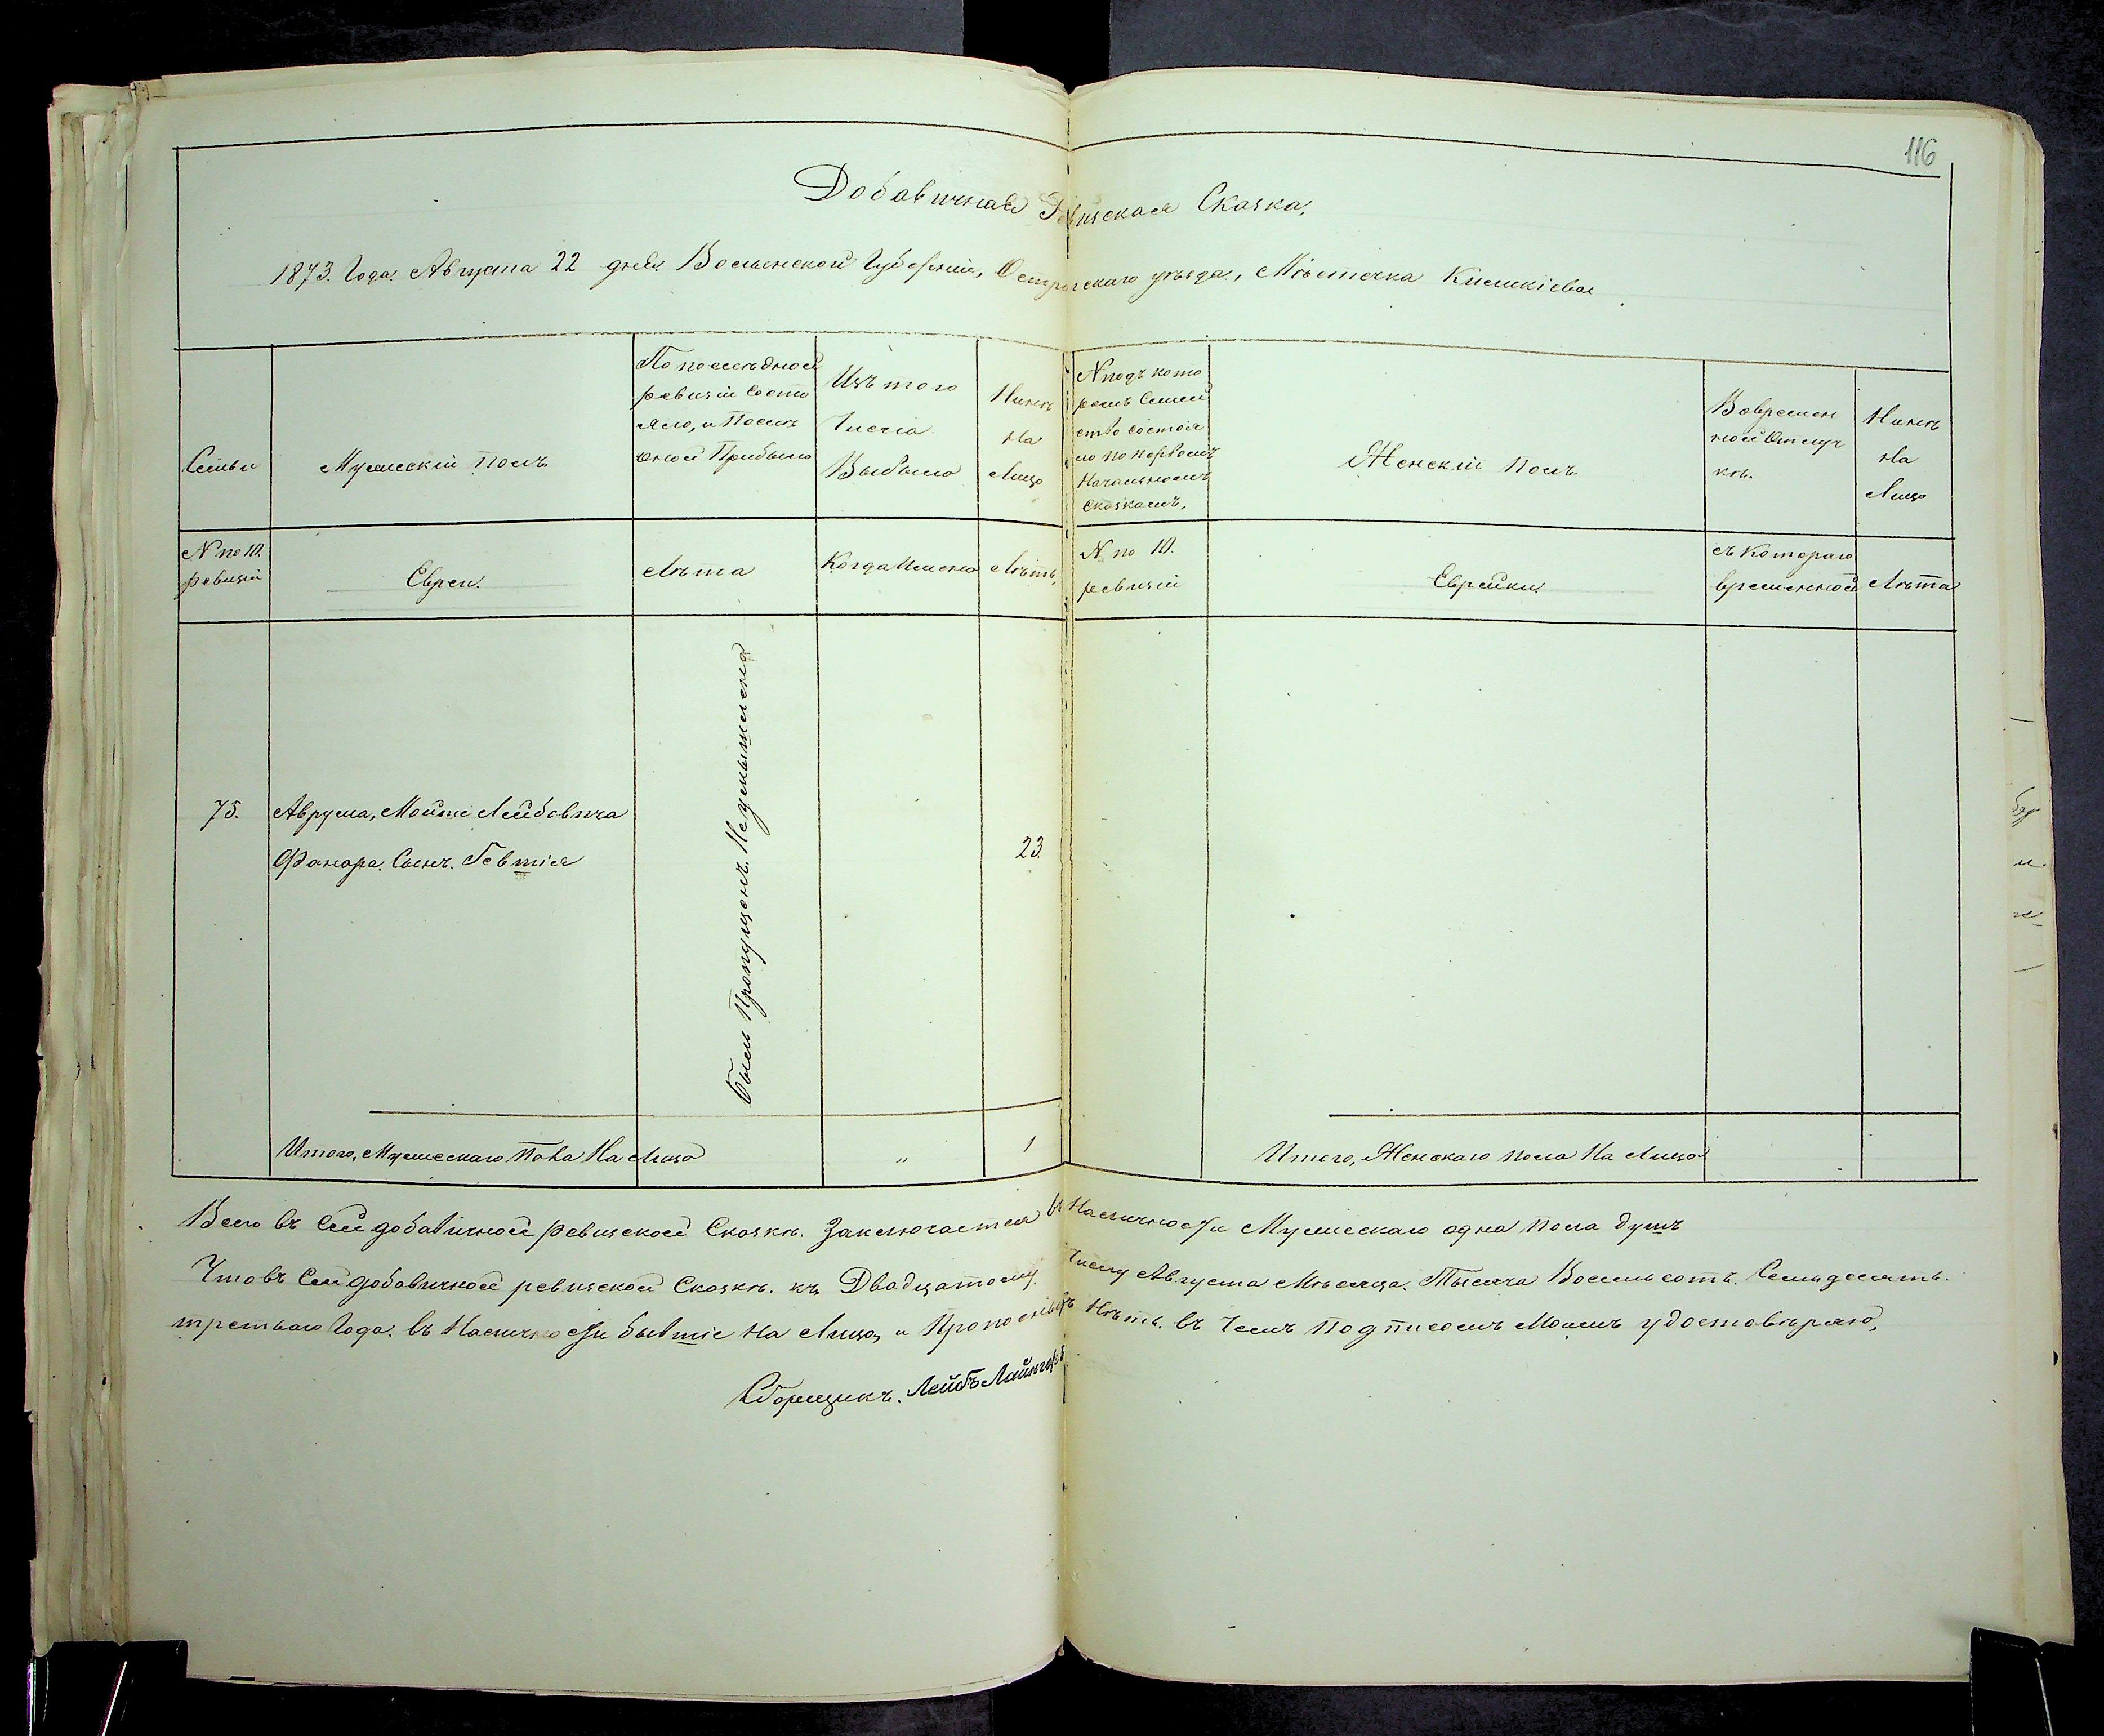 116
Добавичная Ревизская Сказка,
1873. Года. Августа 22 дня Волынской Губерніи, Острогскаго уѣзда, Мѣстечка
Семьи
Мужескій полъ
По послѣдной
ревизіи состо
яло, и Послѣ
оной Прибыло
Изъ того
Числа
Выбыло
Нынѣ
на
Лицо
№ подъ кото
рымъ Семей
ство состоя
ло по первоми
Начальномъ
сказкамъ,
Женскій полъ
Вовремен
ной Отлуч
кѣ.
Нынѣ
на
Лицо
№ по 10.
ревизіи
Евреи.
Лѣта
Когда Именно
Лѣтъ,
№ по 10.
ревизіи
Еврейки
съ Котораго
времянной
Лѣта
75.
Аврума, Мошко Лейбовича
сынъ
Былъ Пропущенъ. Неумышленно
23.
Итого, Мужескаго Пола На Лицо
„
1
Итого, Женскаго пола На Лицо
Всего въ Сей добавичной ревизской Сказкѣ. Заключается въ Наличности Мужескаго одна пола душъ
Что въ Сей добавичной ревизской Сказкѣ. къ Двадцатому Числу Августа Мѣсяца. Тысяча Восемьсотъ. Семьдесятъ.
третьяго Года. въ Наличности бывшіе На Лицо, и Нѣтъ. въ Чемъ Подписомъ Моимъ удостовѣряю,
Сборщикъ. Лейбъ